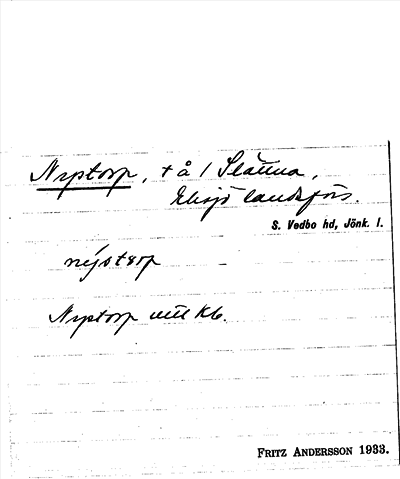 Nyptorp, t å / Slättna,
Eksjö landsförs.
S. Vedbo hd, Jönk. l.
nýstɷrp
Nyptorp uttl Kb.
FRITZ ANDERSSON 1933.